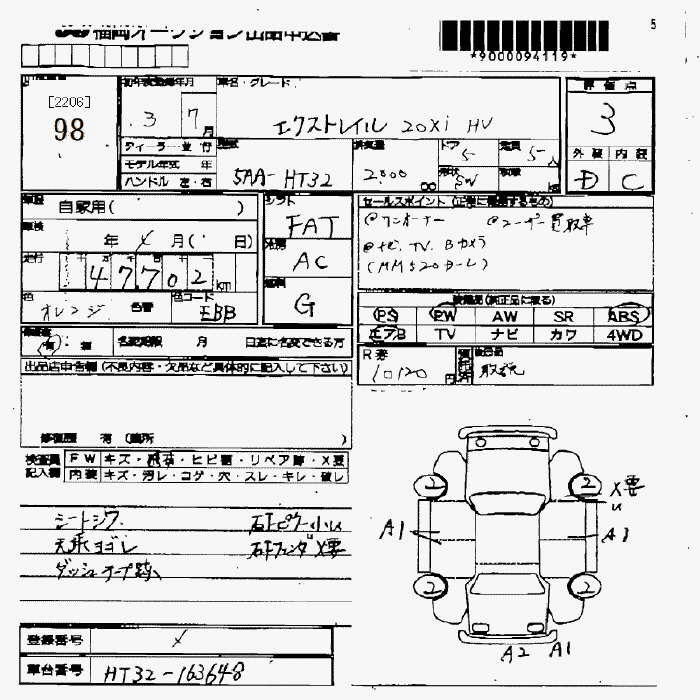 福岡オークション出品申込書
5
*9000094119*
[2206]
98
初年度登録年月
3 7月
車名・グレード
エクストレイル 20Xi HV
評価点
3
外装 内装
D C
ディーラー 並行
モデル年式 年
ハンドル 左・右
型式
5AA-HT32
排気量
2000 cc
ドア
5
形状
SW
定員
5人
車歴
自家用( )
車検
年 月( 日)
走行
47702 km
色
オレンジ
色替
色コード
EBB
シフト
FAT
冷房
AC
燃料
G
セールスポイント (正確に記入するもの)
@ワンオーナー @ユーザー買取車
@ナビ,TV,Bカメラ
(MM520ダール)
装備品(純正品に限る)
PS PW AW SR ABS
エアB TV ナビ カワ 4WD
修復歴
有: 無
名変期限 月 日迄に名変できる方
R券
10120円
後日品
取説
出品店申告欄 (不良内容・欠品など具体的に記入して下さい)
修復歴 有 (箇所 )
検査員記入欄
FW キズ・飛石・ヒビ割・リペア跡・X要
内装 キズ・汚レ・コゲ・穴・スレ・キレ・破レ
シートシワ 右Fピラー小凹
天張ヨゴレ 右Fフェンダ X要
ダッシュテープ跡
2 2
X要
A1
A1
2 2
A2 A1
登録番号
車台番号 HT32-163648